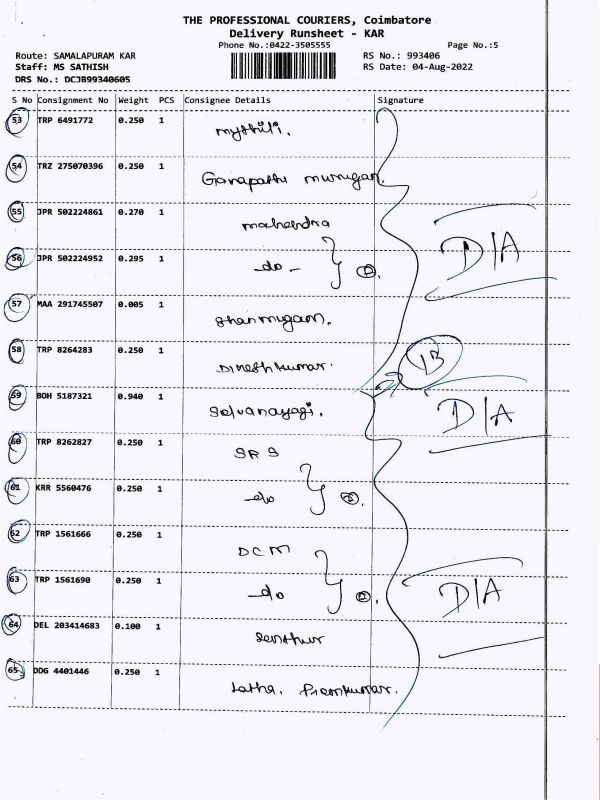 THE PROFESSIONAL COURIERS, Coimbatore
Delivery Runsheet - KAR
Phone No.:0422-3505555
Page No.:5
Route: SAMALAPURAM KAR
RS No.: 993406
Staff: MS SATHISH
RS Date: 04-Aug-2022
DRS No.: DCJB99340605
S No Consignment No Weight PCS Consignee Details Signature
53 TRP 6491772 0.250 1 mythili.
54 TRZ 275070396 0.250 1 Ganapathi murugan.
55 JPR 502224861 0.270 1 mahendra
D/A
56 JPR 502224952 0.295 1 -do- } ②.
57 MAA 291745507 0.005 1 Shanmugam.
58 TRP 8264283 0.250 1 Dineshkumar.
59 BOH 5187321 0.940 1 Selvanayagi.
D/A
60 TRP 8262827 0.250 1 SRS
61 KRR 5560476 0.250 1 -do } ②.
62 TRP 1561666 0.250 1 DCM
63 TRP 1561690 0.250 1 -do } ②.
D/A
64 DEL 203414683 0.100 1 Senthur
65 DDG 4401446 0.250 1 Latha. Premkumar.